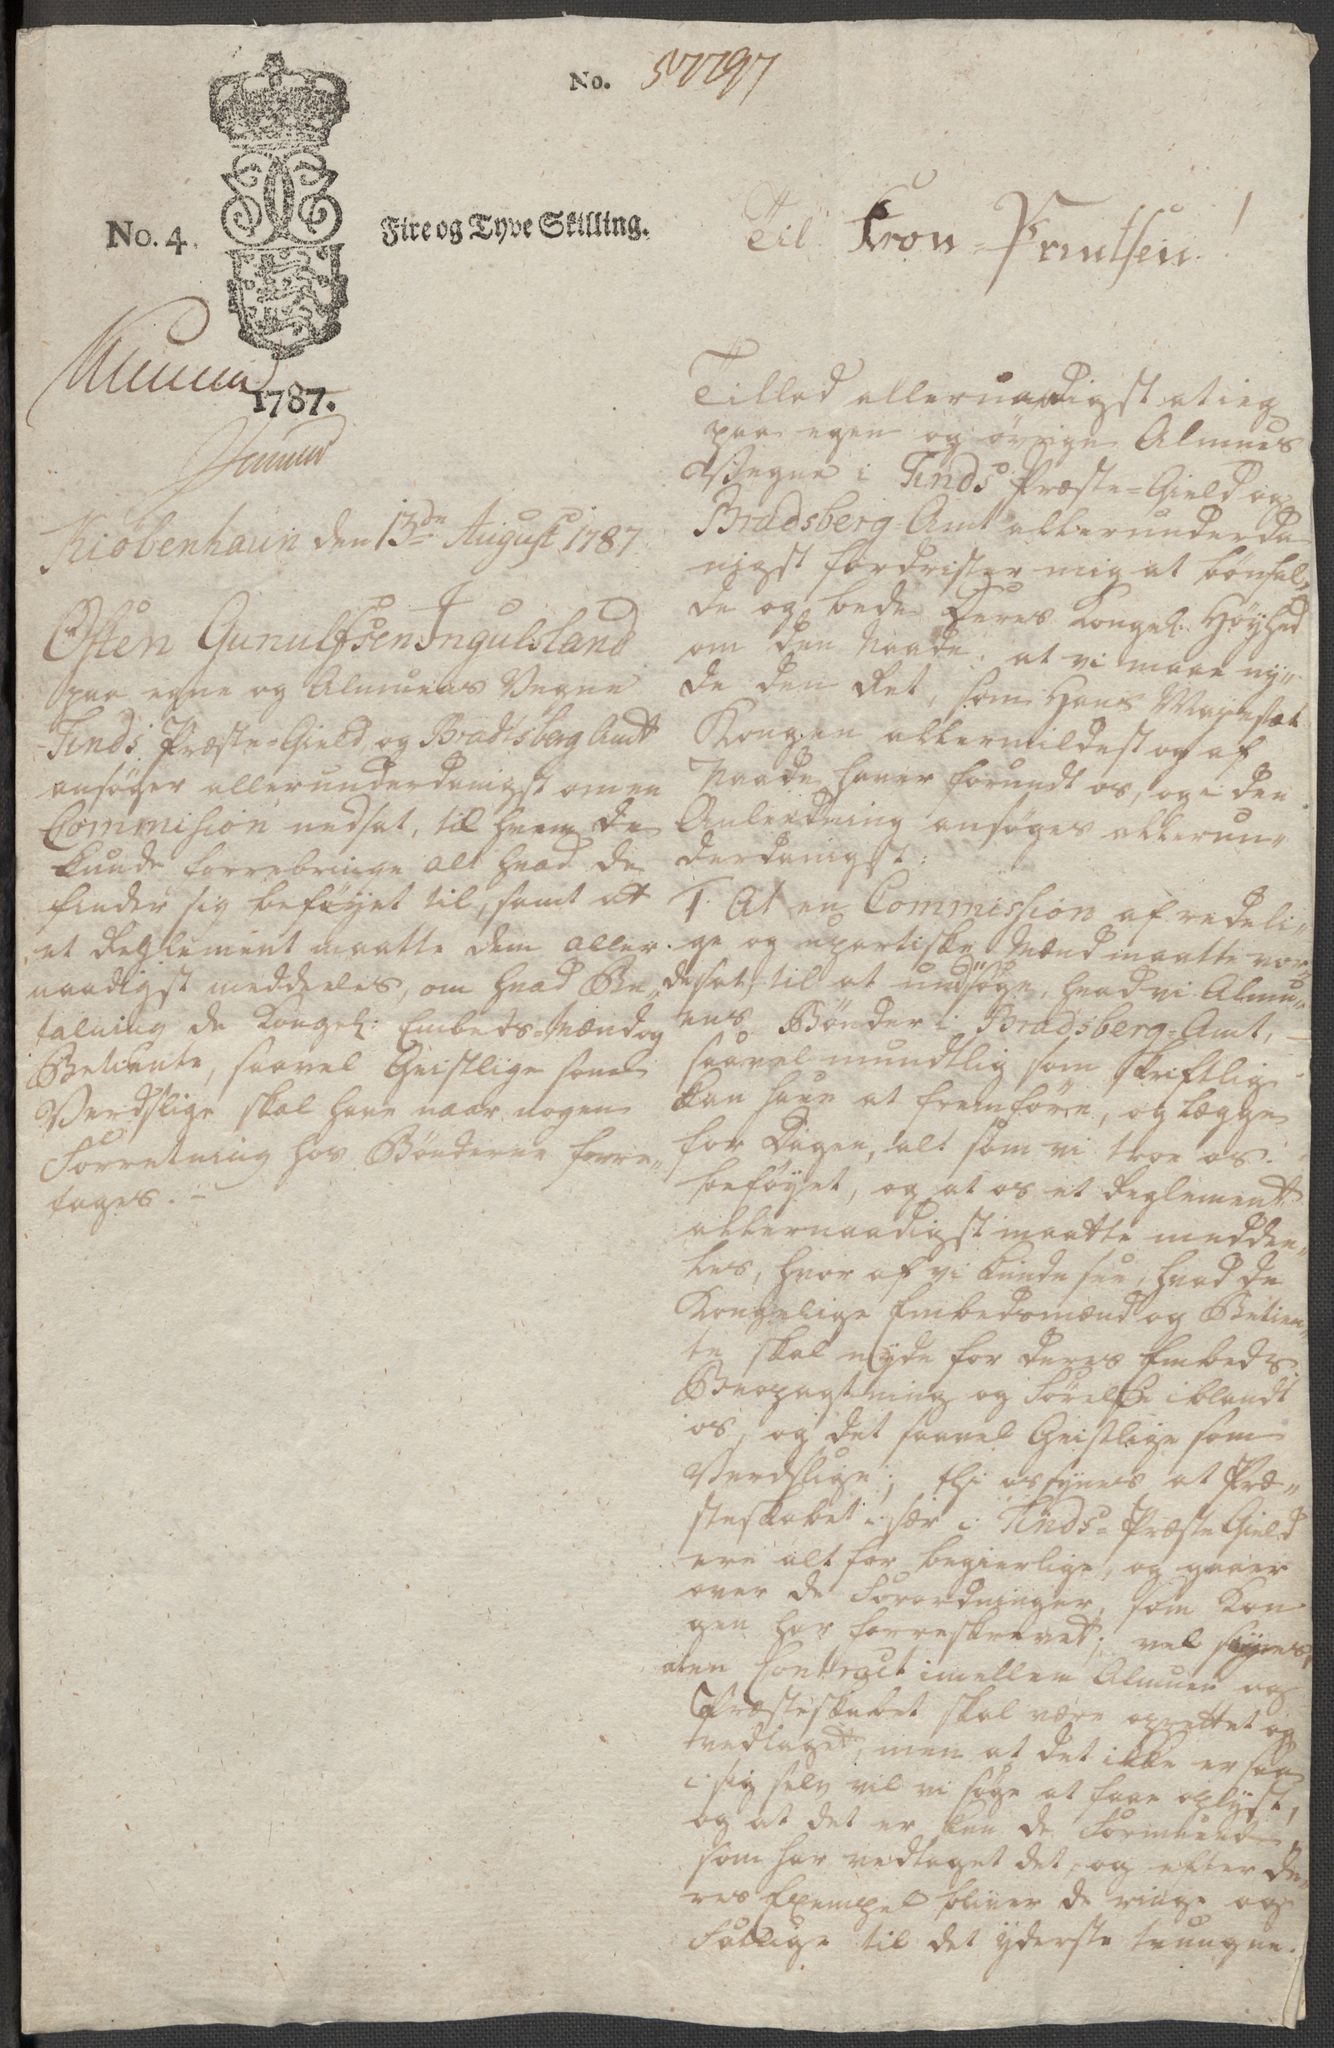 No. 57797
No. 4.
Fire og Tyve Skilling.
1787.
Kiöbenhavn den 13de August 1787
Østen Gunulfsen Ingulsland
paa egne og Almuens Vegne
Tinds Præste-Gield og Bradsberg Amt
ansøger allerunderdanigst om en
Commision nedsat, til hvem de
kunde forrebringe alt hvad de
finder sig beføyet til, samt at
et Reglement maatte dem aller-
naadigst meddeeles, om hvad Be-
talning de Kongel: Embeds-Mænd og
Betiente, saavel Geistlige som
Verdslige skal have naar nogen
Forretning hos Bønderne forre-
tages.
Til Kron-Printsen!
Tillad allernaadigst at ieg
paa egen og øvrige Almues
Vegne i Tinds Præste-Gield og
Bradsberg-Amt allerunderda-
nigst fordrister mig at bønfal-
de og bede Deres Kongel. Høyhed
om den Naade, at vi maae ny-
de den Ret, som Hans Majestæt
Kongen allermildest og af
Naade haver forundt os, og i den
Anledning ansøges allerun-
derdanigst:
1. At en Commission af redeli-
ge og upartiske Mænd maatte vor-
de sat til at undsøge, hvad vi Almu-
ens Bønder i Bradsberg-Amt,
saavel mundtlig som skriftlig
kan have at fremføre, og lægge
for Dagen, alt som vi troe os
beføyet, og at os et Reglement
allernaadigst maatte meddee-
les, hvor af vi kunde see, hvad de
Kongelige Embedsmænd og Betien-
te skal nyde for deres Embeds
og Førelse iblandt
os, og det saavel Geistlige som
Verdslige; thi os synes at Præ-
steskabet i sær i Tinds-Præste Gield
ere alt for begierlige, og gaaer
over de Forordninger, som Kon-
gen har forreskrevet; vel synes,
at en Contract imellem Almuen og
Præsteskabet skal være oprettet og
vedtaget, men at det ikke er saa
i sig selv vil vi søge at faae oplyst,
og at det er kun de Formuende
som har vedtaget det, og efter de-
res Exempel bliver de ringe og
Fattige til det yderste tvungne.